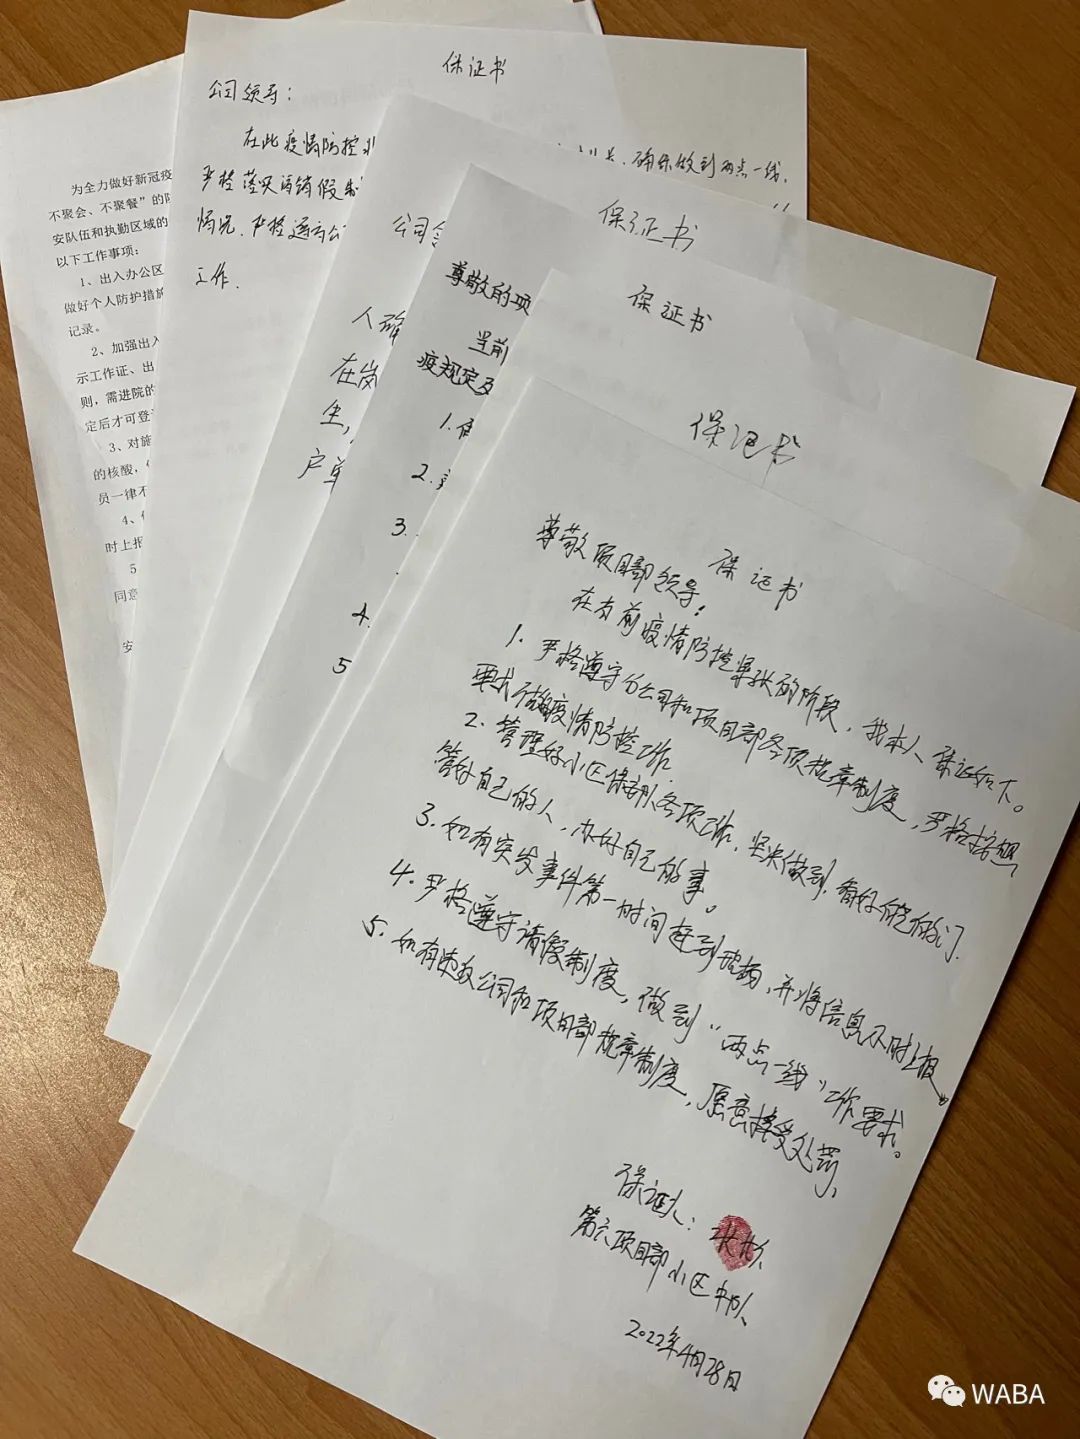 为全力做好新冠疫
不聚会、不聚餐”的防
安队伍和执勤区域的
以下工作事项：
1、出入办公区
做好个人防护措施
记录。
2、加强出入
示工作证、出
则，需进院的
定后才可登
3、对施
的核酸，
员一律不
4、
时上报
5
同意
安
保证书
公司领导：
在此疫情防控
确保做到两点一线，
严格落实请销假制
情况，严格遵守公
工作.
保证书
公司领
人确
在岗
生，
户单
保证书
尊敬的项
当前
疫规定及
1.
2.
3.
4.
5
保证书
保证书
尊敬项目部领导：
在当前疫情防控紧张的阶段，我本人保证如下。
1. 严格遵守分公司和项目部各项规章制度，严格按照
要求做疫情防控工作.
2. 管理好小区保安队各项工作，坚决做到，看好自己的门.
管好自己的人，办好自己的事。
3. 如有突发事件第一时间赶到现场，并将信息及时上报
4. 严格遵守请假制度，做到“两点一线”工作要求。
5. 如有违反公司和项目部规章制度，愿意接受处罚，
保证人：
第六项目部小区中队
2022年4月28日
WABA